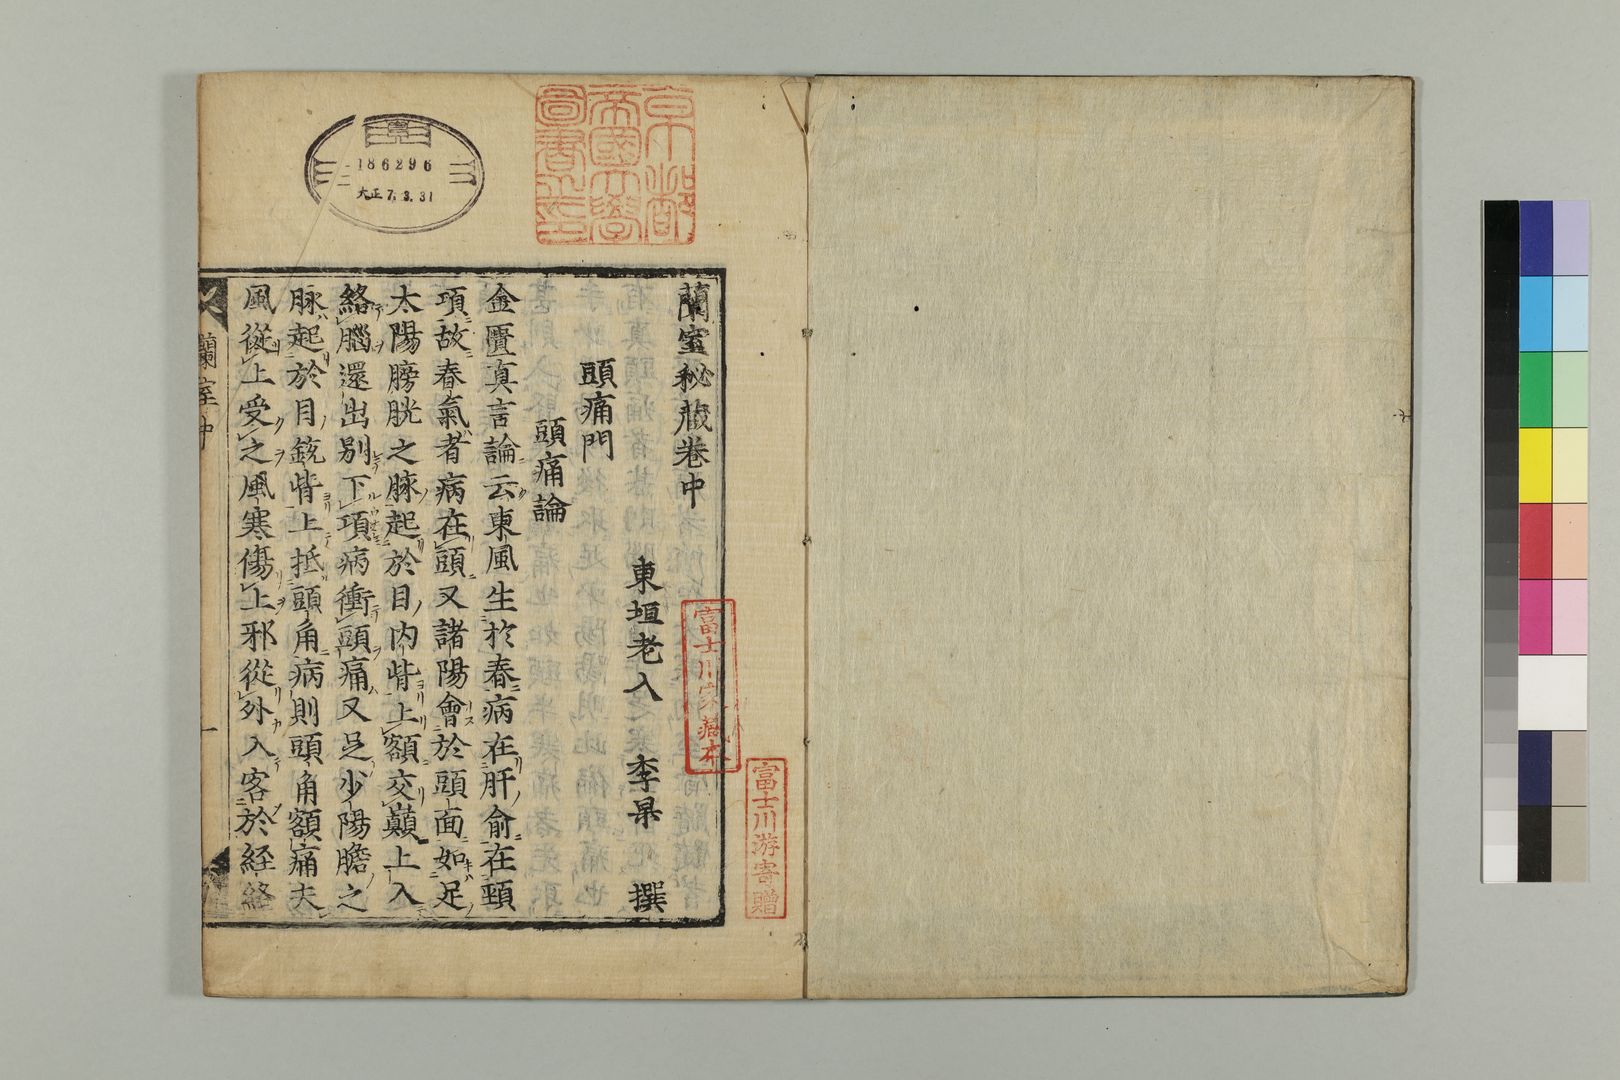 蘭室秘藏卷中
東垣老人 李杲 撰
頭痛門
頭痛論
金匱真言論云東風生於春病在肝俞在頸
項故春氣者病在頭又諸陽會於頭面如足
太陽膀胱之脉起於目内眥上額交巔上入
絡腦還出别下項病衝頭痛又足少陽膽之
脉起於目銳眥上抵頭角病則頭角額痛夫
風從上受之風寒傷上邪從外入客於経絡
蘭室中
一
京都
帝國大學
圖書之印
186296
大正7.3.31
富士川家藏本
富士川游寄贈